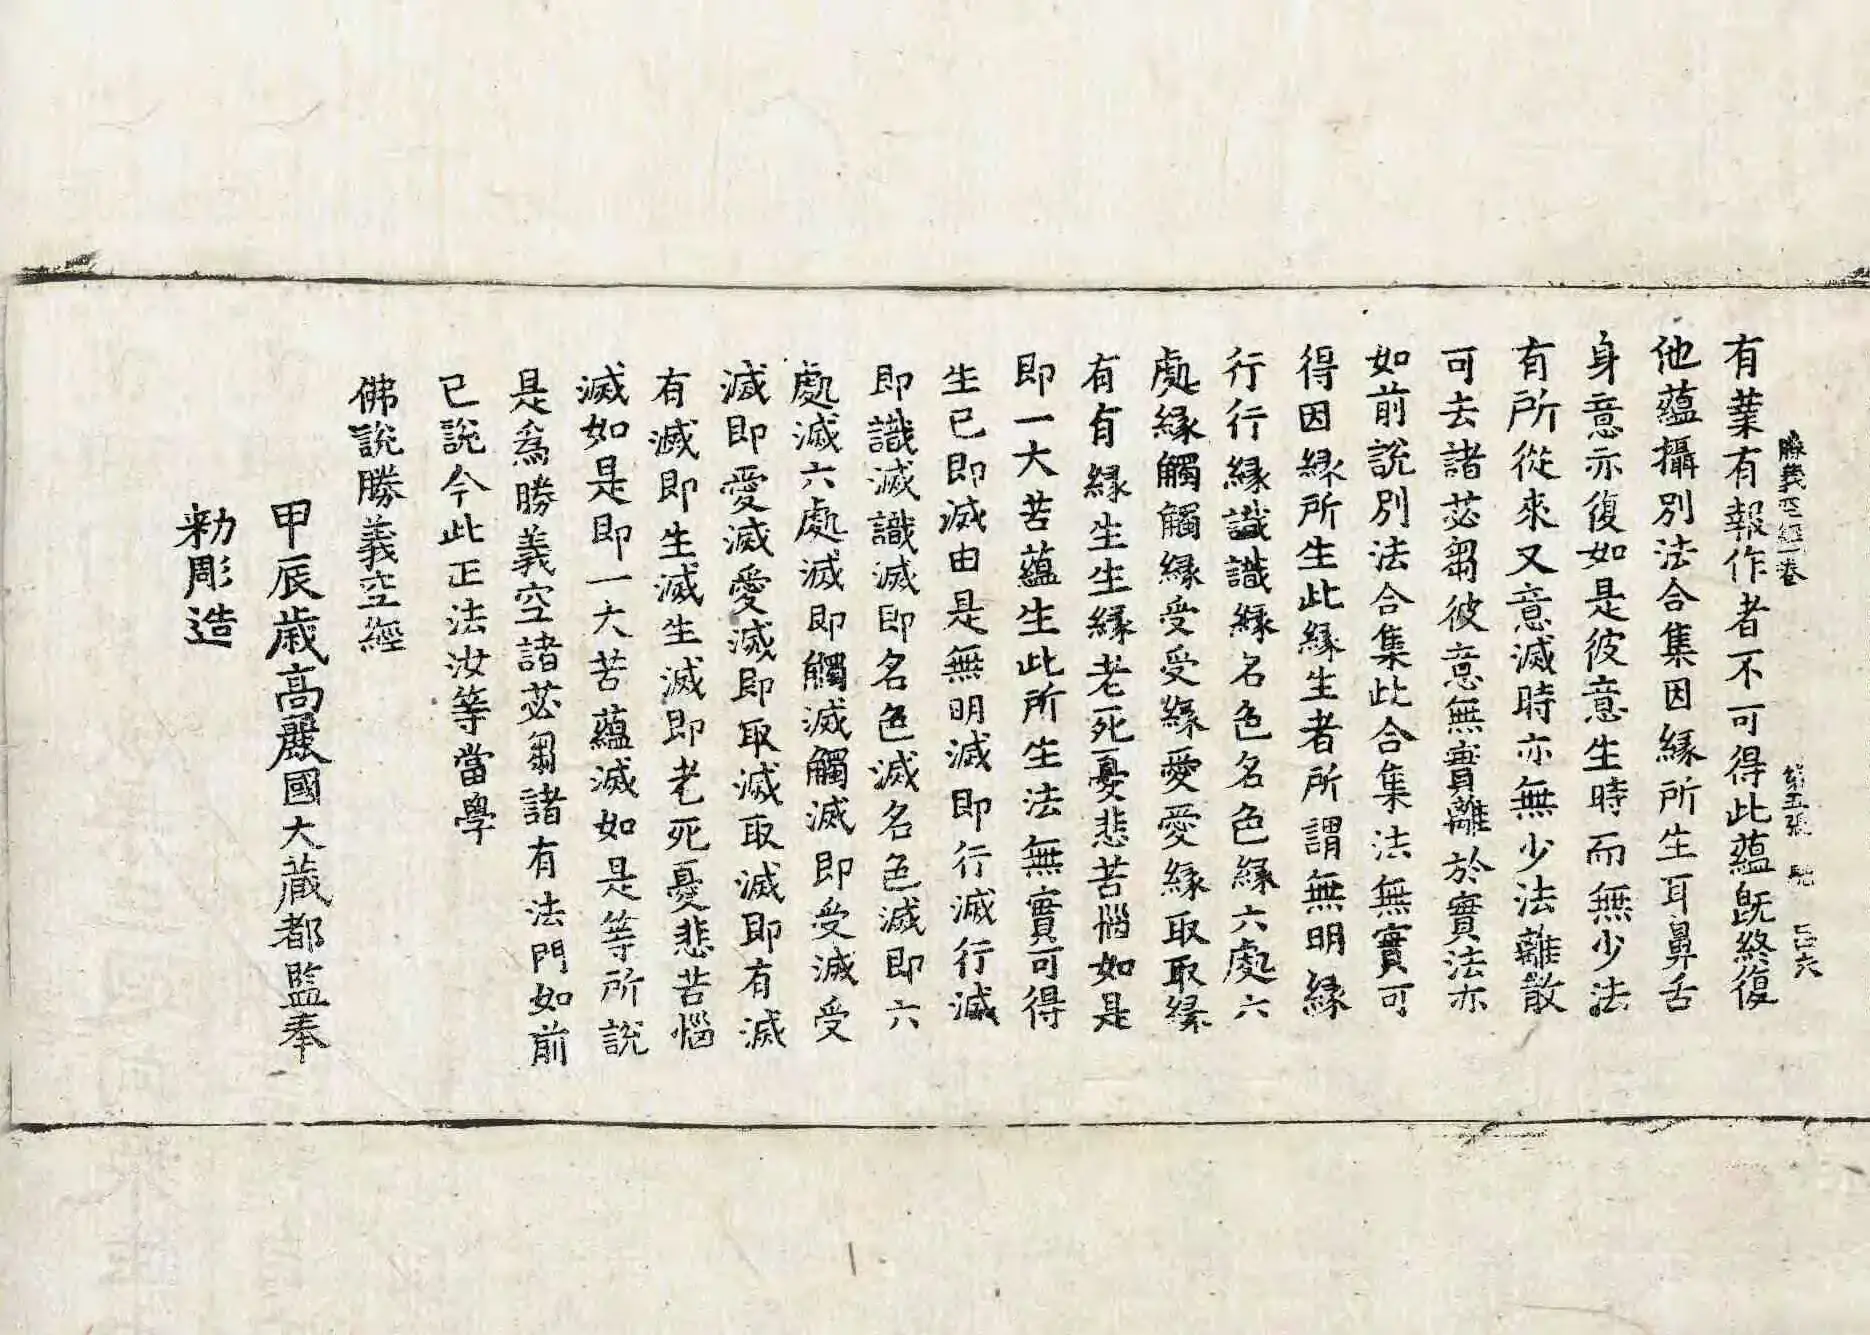 勝義空經一卷 第五張
有業有報作者不可得此蘊旣終復
他蘊攝別法合集因縁所生耳鼻舌
身意亦復如是彼意生時而無少法
有所從來又意滅時亦無少法離散
可去諸苾芻彼意無實離於實法亦
如前說別法合集此合集法無實可
得因縁所生此縁生者所謂無明縁
行行縁識識縁名色名色縁六處六
處縁觸觸縁受受縁愛愛縁取取縁
有有縁生生縁老死憂悲苦惱如是
即一大苦蘊生此所生法無實可得
生已即滅由是無明滅即行滅行滅
即識滅識滅即名色滅名色滅即六
處滅六處滅即觸滅觸滅即受滅受
滅即愛滅愛滅即取滅取滅即有滅
有滅即生滅生滅即老死憂悲苦惱
滅如是即一大苦蘊滅如是等所說
是爲勝義空諸苾芻諸有法門如前
已說今此正法汝等當學
佛說勝義空經
甲辰歲高麗國大藏都監奉
勑彫造